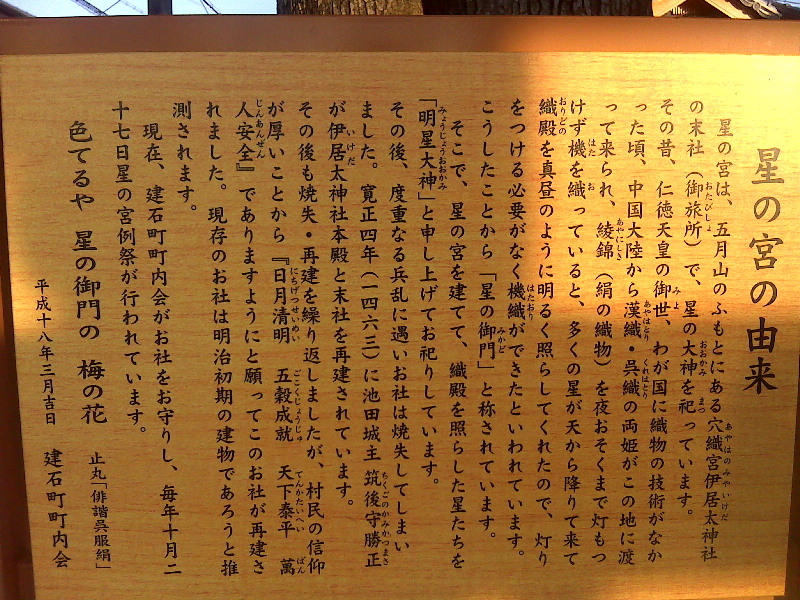 星の宮の由来
星の宮は、五月山のふもとにある穴織宮伊居太神社
の末社（御旅所）で、星の大神を祀っています。
その昔、仁徳天皇の御世、わが国に織物の技術がなか
った頃、中国大陸から漢織・呉織の両姫がこの地に渡
って来られ、綾錦（絹の織物）を夜おそくまで灯もつ
けず機を織っていると、多くの星が天から降りて来て
織殿を真昼のように明るく照らしてくれたので、灯り
をつける必要がなく機織ができたといわれています。
こうしたことから「星の御門」と称されています。
そこで、星の宮を建てて、織殿を照らした星たちを
「明星大神」と申し上げてお祀りしています。
その後、度重なる兵乱に遇いお社は焼失してしまい
ました。寛正四年（一四六三）に池田城主 筑後守勝正
が伊居太神社本殿と末社を再建されています。
その後も焼失・再建を繰り返しましたが、村民の信仰
が厚いことから『日月清明 五穀成就 天下泰平 萬
人安全』でありますようにと願ってこのお社が再建さ
れました。現存のお社は明治初期の建物であろうと推
測されます。
現在、建石町町内会がお社をお守りし、毎年十月二
十七日星の宮例祭が行われています。
色てるや 星の御門の 梅の花
止丸「俳諧呉服絹」
平成十八年三月吉日 建石町町内会